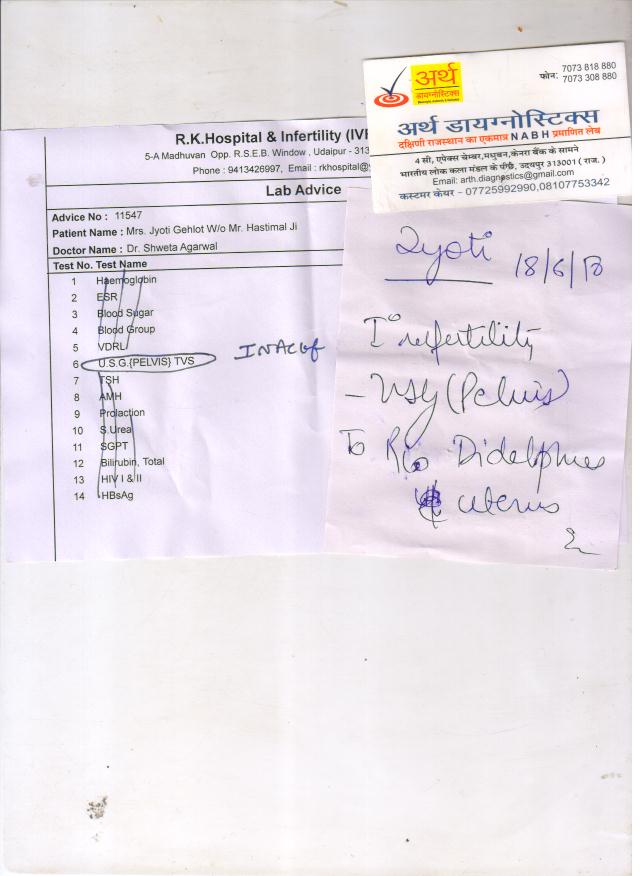 R.K.Hospital & Infertility (IVF
5-A Madhuvan Opp. R.S.E.B. Window , Udaipur - 313
Phone : 9413426997, Email : rkhospital@
Lab Advice
Advice No : 11547
Patient Name : Mrs. Jyoti Gehlot W/o Mr. Hastimal Ji
Doctor Name : Dr. Shweta Agarwal
Test No. Test Name
1 Haemoglobin
2 ESR
3 Blood Sugar
4 Blood Group
5 VDRL
6 U.S.G.{PELVIS} TVS
7 TSH
8 AMH
9 Prolaction
10 S.Urea
11 SGPT
12 Bilirubin, Total
13 HIV I & II
14 HBsAg
अर्थ
डायग्नोस्टिक्स
फोन: 7073 818 880
7073 308 880
अर्थ डायग्नोस्टिक्स
दक्षिणी राजस्थान का एकमात्र NABH प्रमाणित लेब
4 सी, एपेक्स चेम्बर,मधुबन,केनरा बैंक के सामने
भारतीय लोक कला मंडल के पीछे, उदयपुर 313001 ( राज. )
Email: arth.diagnostics@gmail.com
कस्टमर केयर - 07725992990,08107753342
Jyoti
18/6/
Infertility
- USG (Pelvis)
To R/o Didelphus
uterus